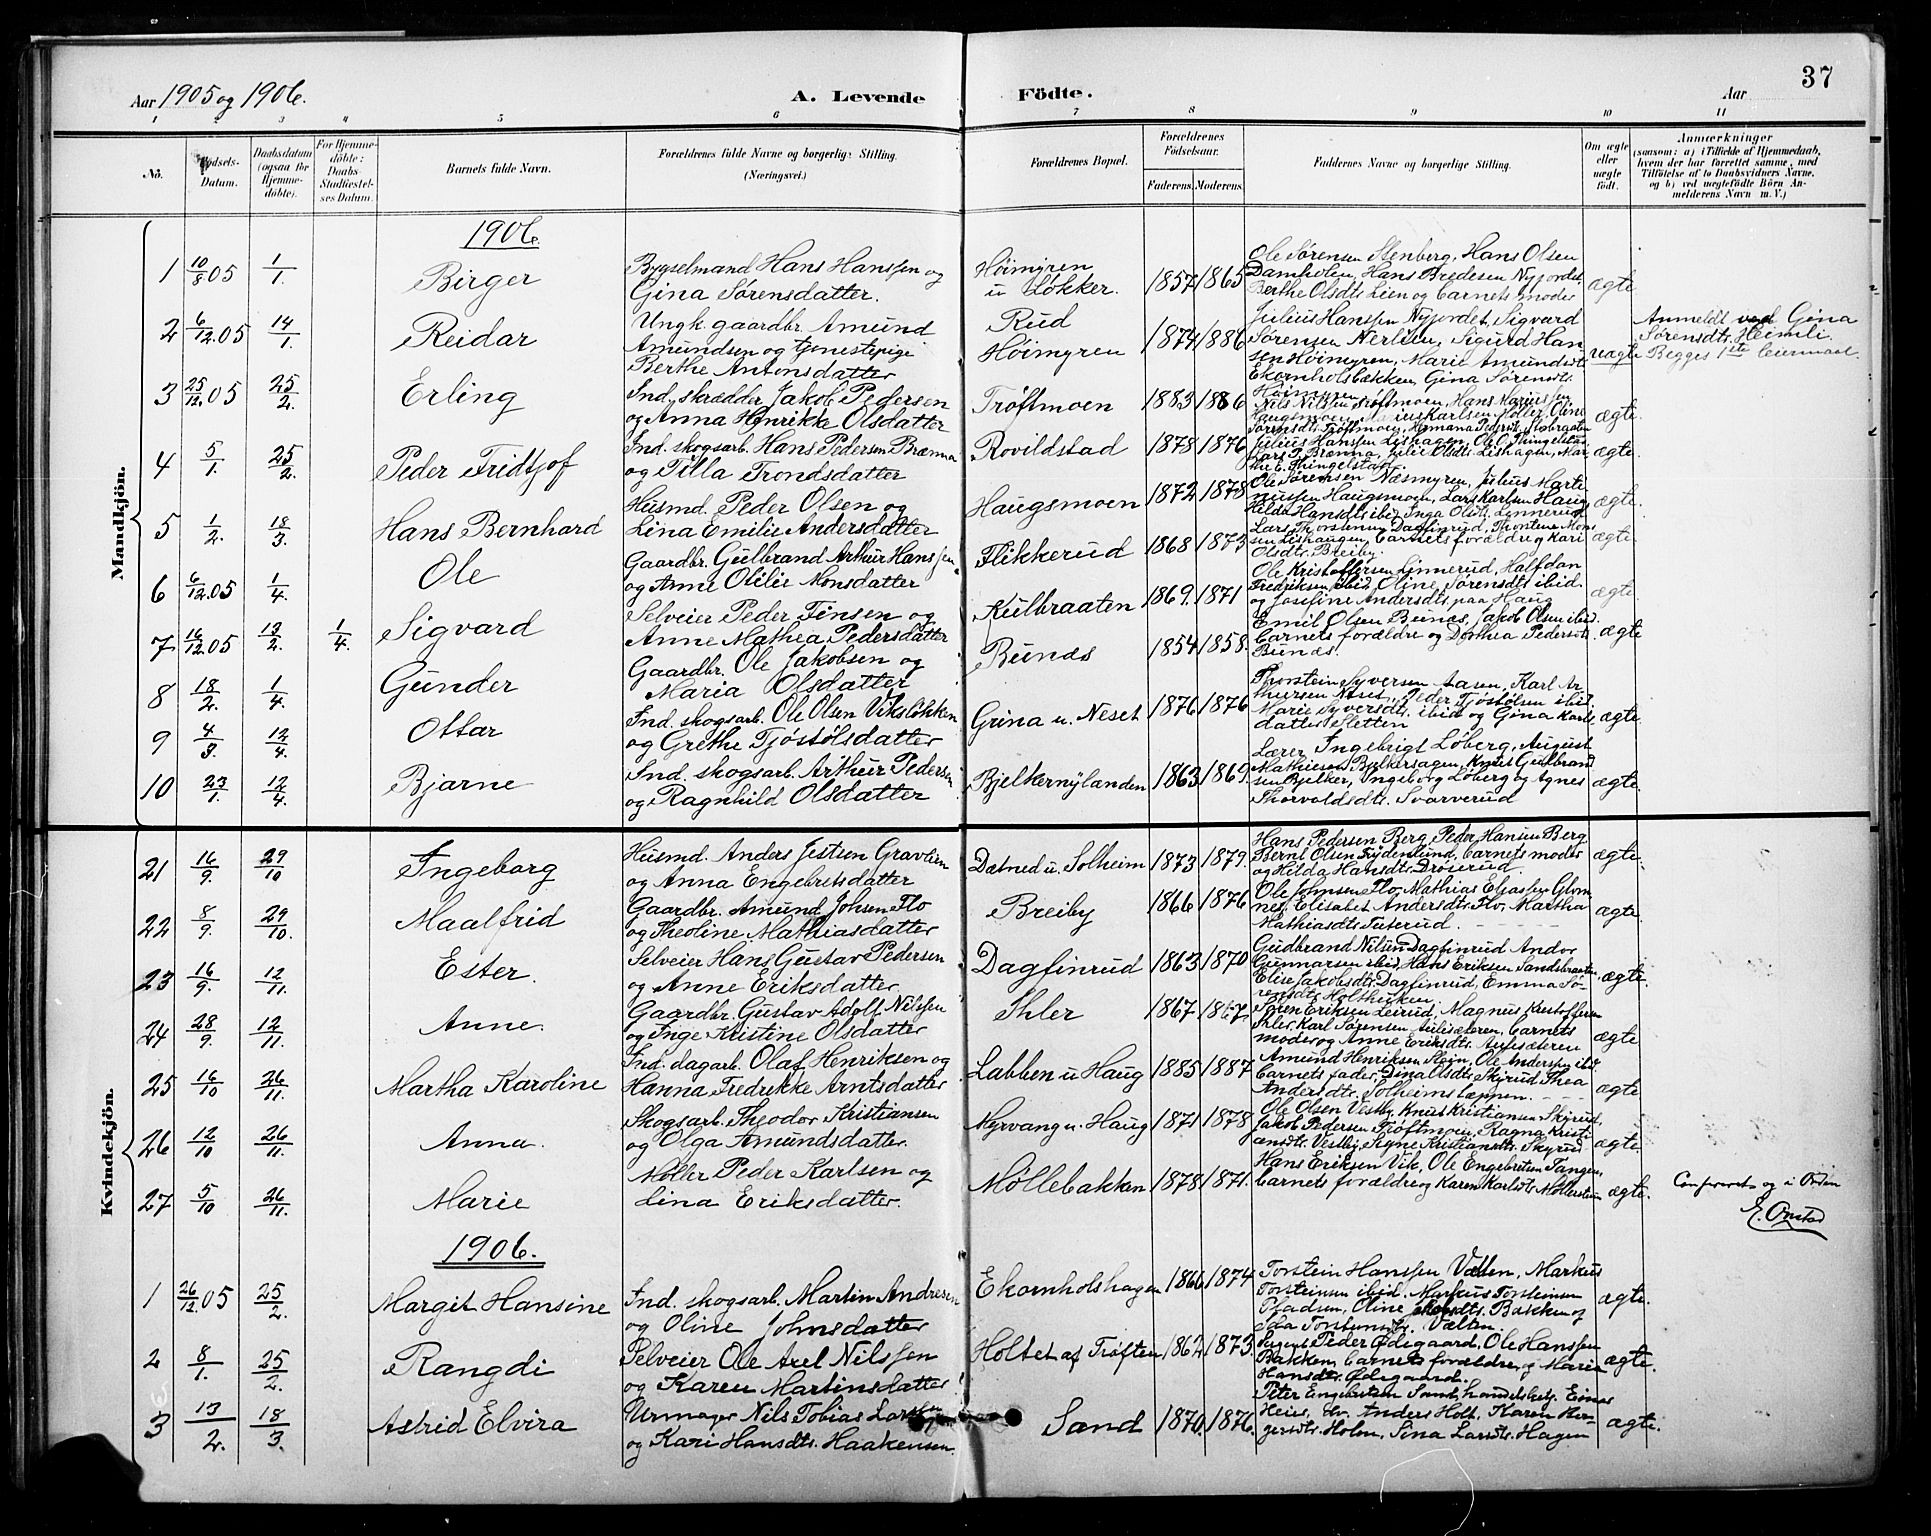 37
Aar 1905 og 1906. A. Levende Födte. Aar
1 2 3 4 5 6 7 8 9 10 11
No.
Fødsels-Datum.
Daabsdatum (ogsaa for Hjemmedöbte).
For Hjemmedöbte: Daabs Stadfæstelses Datum.
Barnets fulde Navn.
Forældrenes fulde Navne og borgerlige Stilling. (Næringsvei.)
Forældrenes Bopæl.
Forældrenes Födselsaar.
Faderens. Moderens.
Faddernes Navne og borgerlige Stilling.
Om ægte eller uægte födt.
Anmærkninger
(saasom: a) i Tilfælde af Hjemmedaab,
hvem der har forrettet samme, med
Tilföielse af to Daabsvidners Navne,
og b) ved uægtefödte Börn An-
melderens Navn m. V.)
Mandkjön.
1906.
1 10/8 05 1/1 Birger Bygselmand Hans Hanssen og Gina Sørensdatter. Høimyren u Løkker. 1857 1865 Ole Sørensen Stenberg, Hans Olsen Damholen, Hans Bredesen Nyjordet Berthe Olsdt. Lien og barnets moder ægte
2 6/12.05 14/1. Reidar Ungk. gaardbr. Amund Amundsen og tjenestepige Berthe Antonsdatter Rud Høimyren 1874 1886 Julius Hanssen Nyjordet, Sigvard Sørensen Nerlien, Sigurd Hansen Høimyren, Marie Amundsdt. Ekornholsbækken, Gina Sørensdt. Høimyren uægte Anmeldt ved Gina Sørensdt. Heimli. Begges 1ste leiermaal.
3 25/12.05 25/2. Erling Ind. skrædder Jakob Pedersen og Anna Henrikke Olsdatter Trøftmoen 1883 1886 Nils Nilsen Trøftmoen, Hans Mariussen Haugsmoen, Karlsen Møller, Oline Sørensdt. Trøftmoen, ægte
4 5/1. 25/2. Peder Fridtjof Ind. skogsarb. Hans Pedersen Brænna og Tilla Trondsdatter Rovildstad 1878 1876 Julius Hanssen Lishagen, Ole O. Thingelstad, Lars P. Brænna, Julie Olsdt. Lishagen, Marthe E. Thingelstad. ægte
5 1/2. 18/3. Hans Bernhard Husmd. Peder Olsen og Lina Emilie Andersdatter Haugsmoen 1872 1878 Ole Sørensen Næsmyren, Julius Martinussen Haugsmoen, Lars Karlsen Haug, Hilda Hansdt. ibid, Inga Olsdt. Linnerud ægte
6 6/12.05 1/4. Ole Gaardbr. Gulbrand Arthur Hanssen og Anne Olilie Monsdatter Flikkerud 1868 1873 Lars Thorstensen Dagfinrud, Thorstein Monsen Lishaugen, barnets forældre og Kari Olsdtr. Breiby. ægte
7 16/12.05 13/2. 1/4. Sigvard Selveier Peder Finsen og Anne Mathea Pedersdatter Kulbraaten 1869. 1871 Ole Kristoffersen Linnerud, Halfdan Fredriksen ibid, Oline Sørensdt ibid. og Josefine Andersdt. paa Haug ægte
8 18/2. 1/4. Gunder Gaardbr. Ole Jakobsen og Maria Olsdatter Bunæs 1854 1858. Emil Olsen Bunæs, Jakob Olsen ibid. barnets forældre og Dorthea Pedersdt. Bunæs. ægte
9 4/3. 12/4. Ottar Ind. skogsarb. Ole Olsen Viksløkken og Grethe Tjøstølsdatter Grina u. Neset 1876 1876 Thorstein Syversen Aasen, Karl Arthursen Neset, Peder Tjøstølsen ibid Marie Syversdt. ibid og Gina Karlsdatter Sletten ægte.
10 23/1. 12/4. Bjarne Ind. skogsarb. Arthur Pedersen og Ragnhild Olsdatter Bjelkernylænden 1863 1869. Lærer Ingebrigt Løberg, August Mathiesen Bjelkersagen, Knut Gulbrandsen Bjelker, Ingeborg Løberg og Agnes Thorvaldsdt. Svarverud ægte.
Kvindekjön.
21 16/9. 29/10 Ingeborg Husmd. Anders Jestsen Gravlien og Anna Engebretsdatter Dæhud u. Solheim 1873 1879. Hans Pedersen Berg, Peder Hansen Berg Bernt Olsen Frydenlund, barnets moder og Hilda Hansdt. Drøserud. ægte.
22 8/9. 29/10. Maalfrid Gaardbr. Amund Johsen Flo og Theoline Mathiasdatter Breiby 1866 1876 Ole Johnsen Flo, Mathias Eliassen Glomnes, Elisabet Andersdt. Flo, Martha Mathiasdt. Feterud. ægte.
23 16/9. 12/11. Ester. Selveier Hans Gustav Pedersen og Anne Eriksdatter. Dagfinrud 1863 1870 Gudbrand Nilsen Dagfinrud Andor Gunnarsen ibid, Hans Eriksen Sandsbraaten, Elise Jakobsdt. Dagfinrud, Emma Sørensdt. Holthuken, ægte.
24 28/9. 12/11. Anne. Gaardbr. Gustav Adolf Nilssen og Inge Kristine Olsdatter Ihler 1867 1867 Søren Eriksen Leirud, Magnus Kristoffersen Ihler, Karl Sørensen Aulisæteren, barnets moder og Anne Eriksdt. Aulisæteren ægte
25 16/10 26/11. Martha Karoline Ind. dagarb. Olaf Henriksen og Hanna Fredrikke Arntsdatter Labben u Haug 1885 1887 Amund Henriksen Stein, Ole Andersby ibid. barnets fader, Dina Olsdt. Skjrud, Thea Andersdt. Solheimstappen. ægte
26 12/10 26/11. Anna. Skogsarb. Theodor Kristiansen og Olga Amundsdatter. Myrvang u. Haug 1871 1878 Ole Olsen Vestby, Knut Kristiansen Skyrud, Jakob Pedersen Trøftmoen, Ragna Kristiansdt. Vestby, Signe Kristiansdt. Skyrud. ægte.
27 5/10 26/11. Marie Møller Peder Karlsen og Lina Eriksdatter. Møllebakken 1878 1871. Hans Eriksen Vik, Ole Engebretsen Tangen, barnets forældre og Karen Karlsdt. Møllerstuen ægte. Confereret og i Orden E. Onstad
1906.
1 26/12.05 25/2. Margit Hansine Ind. skogsarb. Martin Andresen og Oline Johnsdatter Ekornholshagen 1866 1874 Torstein Hanssen Vælten, Markus Torsteinsen ibid. Markus Torsteinsen Pladsen, Oline Bakken og Ida Torsteinsdt. Vælten. ægte.
2 8/1. 25/2. Rangdi Selveier Ole Axel Nilssen og Karen Martinsdatter Holtet af Trøften 1862 1873. Sergent Peder Ødegaard, Ole Hanssen Bakken, barnets forældre og Marie Hansdtr. Ødegaard. ægte.
3 13/2. 18/3. Astrid Elvira Urmager Nils Tobias Larssen og Kari Hansdt. Haakensen. Sand 1870. 1876. Peter Engebretsen Sand, handelsbetj. Einar Heier, Anders Holt, Karen Holm, Sina Larsdt. Hagen ægte.